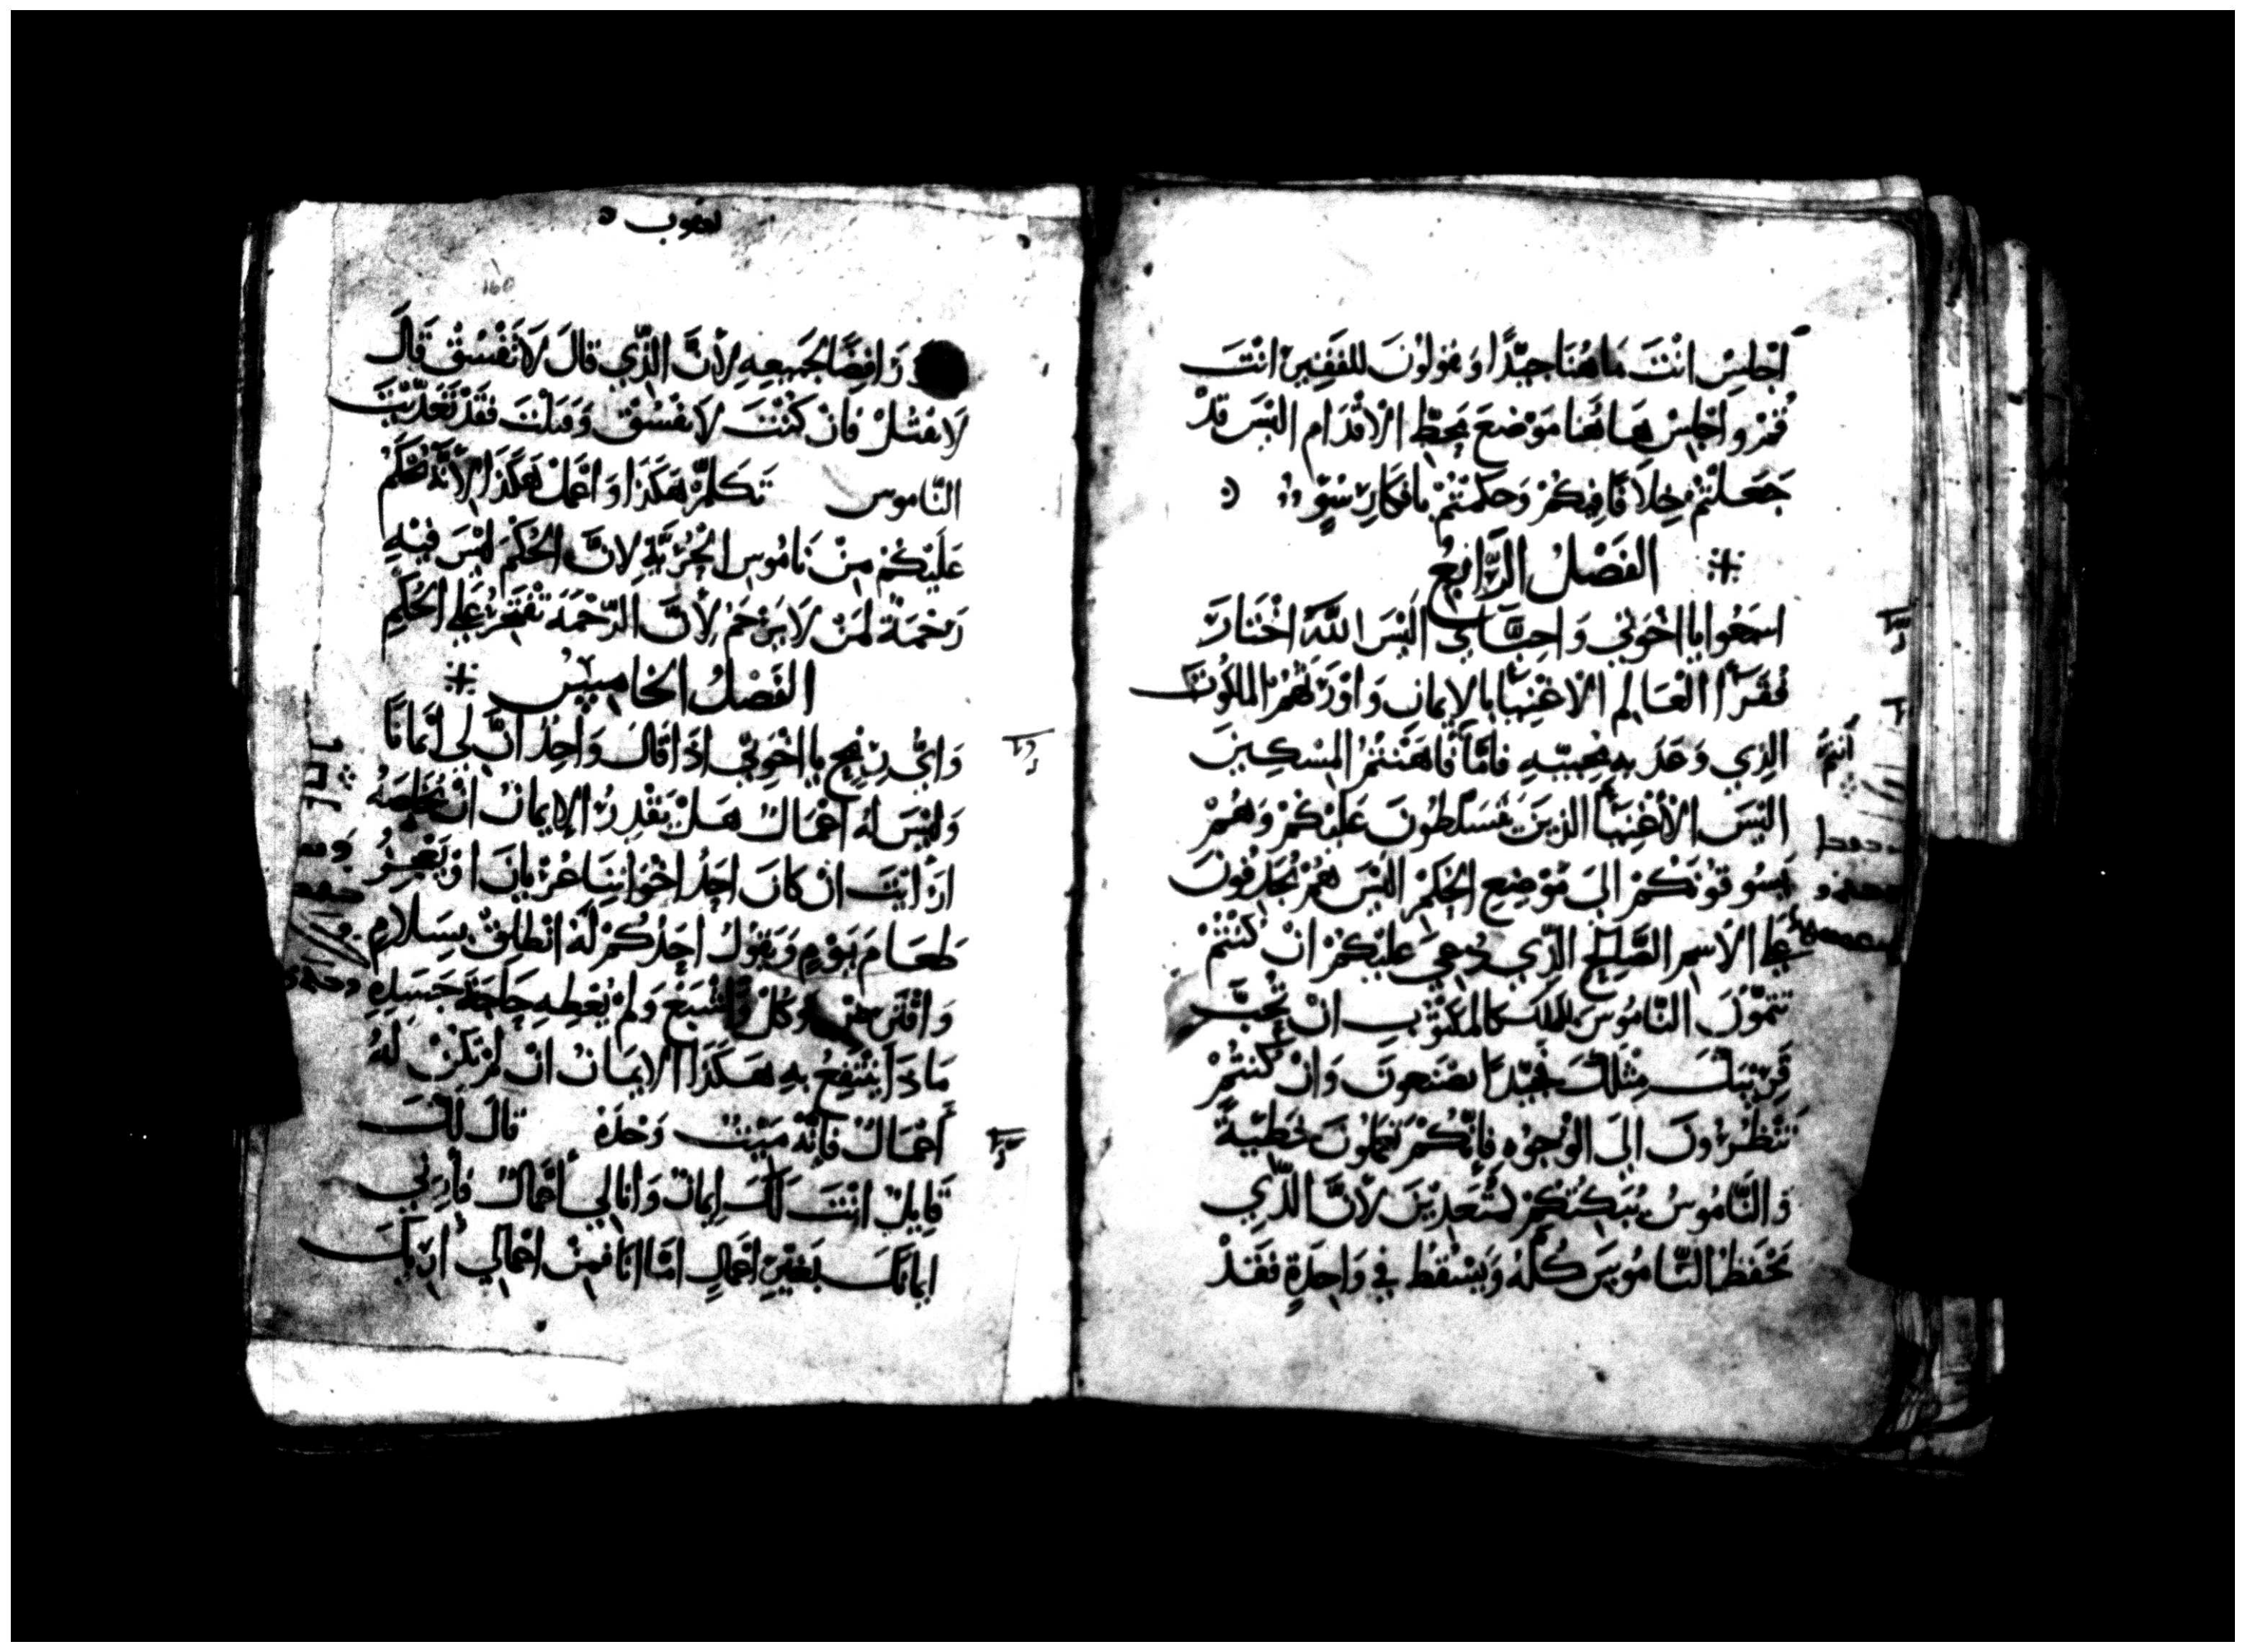 اجْلِسْ انْتَ هَاهُنَا جَيِّدًا وَتقولونَ للفَقِيرِ انْتَ
قُمْ واجْلِسْ هَاهُنا مَوْضعَ مَحطِّ الاقْدَام اليْسَ قدْ
جَعَلْتُمْ خِلاَفًا فِيكُمْ وَحكمْتُمْ بافكَارٍ سُوٍّ
الفَصْلُ الرَّابِعُ
اسمَعُوا يا اخْوَتي وَاحِبَّاي اليْسَ اللَّهُ اخْتَارَ
فُقَرَآ العَالِم الاغْنِيَآ بالايمانِ وَاوْرَثَهُمْ الملكُوتَ
الذِي وَعَدَ بهِ مُحِبيهِ فامَّا فاهَنْتُمْ المِسْكِينَ
انتم
اليْسَ الأغْنِيَآ الذينَ يَتَسَلطُونَ عَليْكُمْ وَهُمْ
يَسُوقونَكُمْ الىَ مَوْضِعِ الحُكمْ اليْسَ هُمْ يُجَدِفُونَ
علي الاسمِ الصَّالِحِ الذِّي دُعِيَ عليْكُمْ انْ كُنْتُمْ
تتمّونَ النَّامُوسَ بذلك كالمكتُوبِ انْ تُحِبَّ
قَرِيْبَكَ مِثْلكَ فجَيِّدًا تصْنَعونَ وَانْ كنتُمْ
تَنْظُرُونَ اليَ الوُجُوْهِ فإنَّكُمْ تعمَلونَ خَطيَّةً
وَالنَّامُوسُ يُبَكِتُكُمْ كمُتعَدِيْنَ لأنَّ الذِّي
يَحْفَظُ النَّامُوسَ كُلَّهُ وَيَسْقُطُ فِي وَاحِدَةٍ فقَدْ
يعقوب
160
رَافِضًا لجَمِيعِهِ لأنَّ الذِّي قالَ لاَ تَفْسُقْ قَالَ
لاَ تقتُلْ فانْ كُنْتَ لاَ تفْسُقْ وَقتلْتَ فقَدْ تَعَدَّيْتَ
النَّاموس تَكلمْ هَكَذَا وَاعْمَلْ هَكَذَا لأنَّهُ يُحْكَمُ
عَليْكُمْ مِنْ نَامُوسِ الحُرِّيَّةِ لانَّ الحُكْمَ ليْسَ فيْهِ
رَحْمَةٌ لمَنْ لاَ يَرْحَمْ لأنَّ الرَّحْمَةَ تفْتَخِرُ علي الحُكْمِ
الفَصْلُ الخَامِسُ
وَايُّ رِبْحٍ يا اخْوَتي اذَا قالَ وَاحِدٌ انَّ لي ايمَانًا
وَليْسَ لهُ اعْمَالٌ هَلْ يَقْدِرُ الإيمانُ انْ يُخَلِّصَهُ
ارَأَيْتَ انْ كانَ احَدُ اخْوَاتِنَا عُرْيانَ اوْ يَعْجِزُ
طَعَامَ يَوْمٍ وَيَقولُ احَدُكمْ لَهُ انْطَلِقْ بِسَلامٍ
وَكُلْ وَاشْبَعْ وَلمْ يُعْطِهِ حَاجَةَ جَسَدِهِ
مَاذَا يَنْتَفِعُ بهِ هَكَذَا الايمَانُ انْ لمْ تَكُنْ لَهُ
أعْمَالٌ فإنَّهُ مَيِّتٌ وَحْدَهُ قالَ لكَ
قَايِلٌ انْتَ لكَ إيمانٌ وَانا لي أعْمَالٌ فأرِني
ايمانَكَ بغيْرِ اعْمَالٍ امَّا انَا فمِنْ اعْمَالي أرِيْكَ